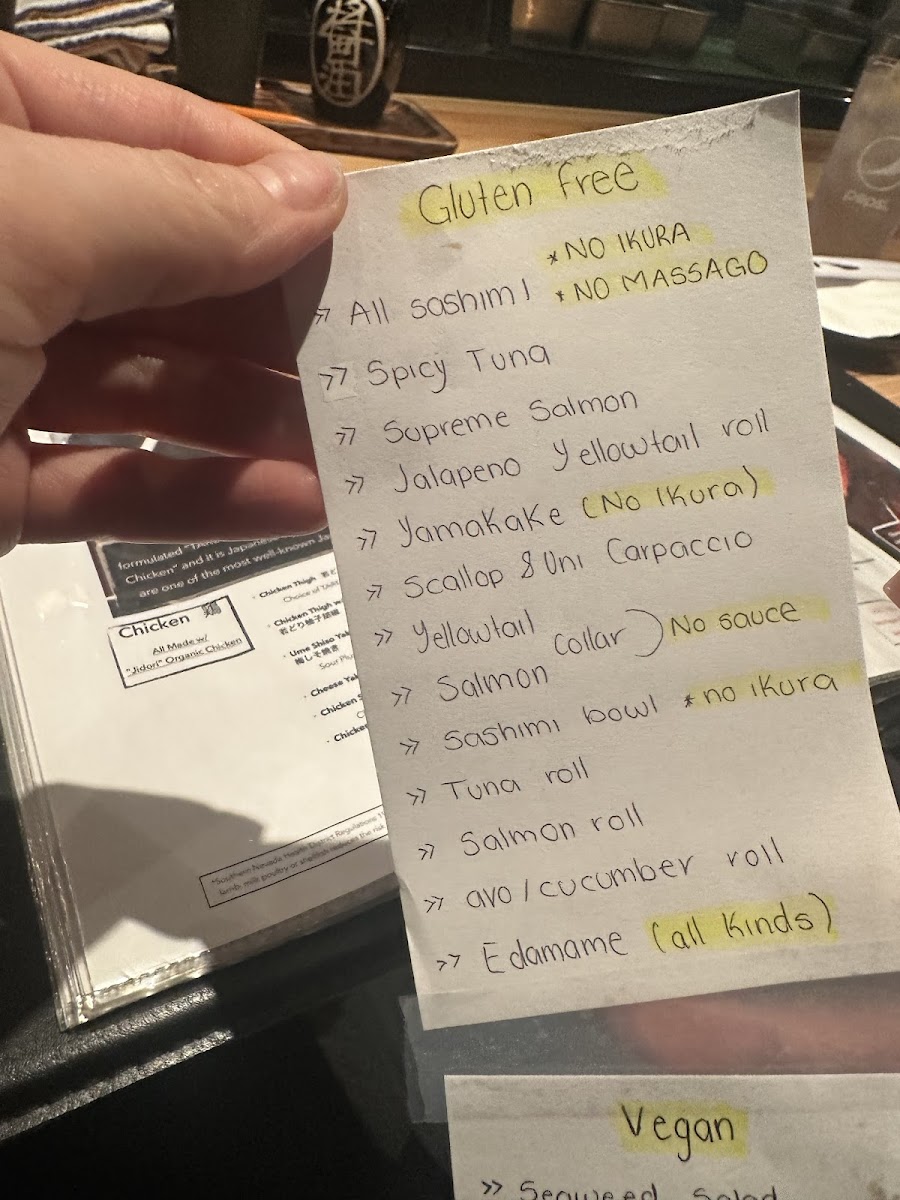 Gluten free
*NO IKURA
>> All sashimi *NO MASSAGO
>> Spicy Tuna
>> Supreme Salmon
>> Jalapeno Yellowtail roll
>> Yamakake (No Ikura)
>> Scallop & Uni Carpaccio
>> Yellowtail
collar) No sauce
>> Salmon
>> Sashimi bowl *no ikura
>> Tuna roll
>> Salmon roll
>> avo/cucumber roll
>> Edamame (all kinds)
Vegan
>> Seaweed Salad
pepsi
formulated
Chicken" and it is Japane
are one of the most well-known Ja
Chicken
All Made w/
"Jidori" Organic Chicken
Chicken Thigh
Choice of
Chicken Thigh
Ume Shiso Yak
梅しそ焼き
Sour Plu
Cheese Yak
Chicken
Chicke
*Southern Nevada Health District Regulations
lamb, milk poultry or shellfish reduces the risk